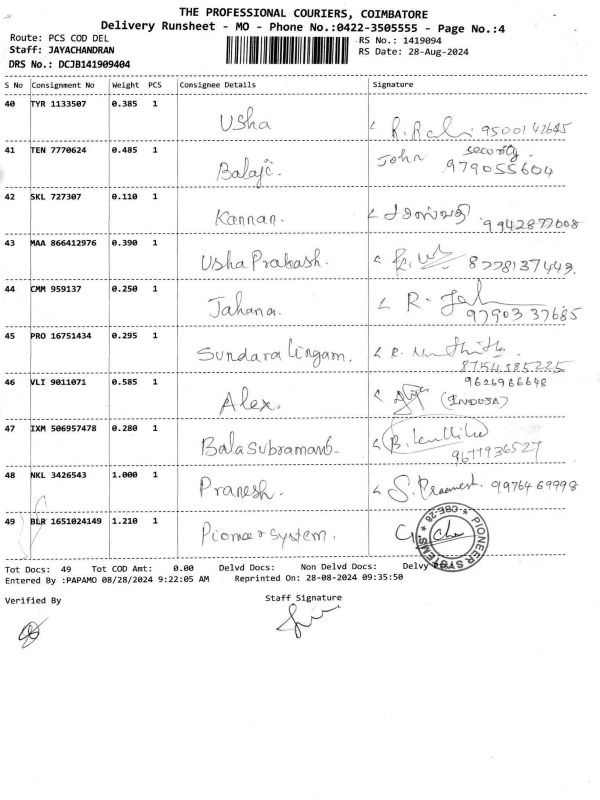 THE PROFESSIONAL COURIERS, COIMBATORE
Delivery Runsheet - MO - Phone No.:0422-3505555 - Page No.:4
Route: PCS COD DEL RS No.: 1419094
Staff: JAYACHANDRAN RS Date: 28-Aug-2024
DRS No.: DCJB141909404
S No Consignment No Weight PCS Consignee Details Signature
40 TYR 1133507 0.385 1
Usha 95001 42645
41 TEN 7770624 0.485 1 John security
Balaji 979055604
42 SKL 727307 0.110 1
Kannan. 9942877008
43 MAA 866412976 0.390 1
Usha Prakash. 8778137449.
44 CMM 959137 0.250 1
Jahana. R.
97903 37685
45 PRO 16751434 0.295 1
Sundaralingam.
8754385225
46 VLI 9011071 0.585 1 9626966648
Alex. (INDUJA)
47 IXM 506957478 0.280 1
Balasubramani.
9677936527
48 NKL 3426543 1.000 1
Pranesh. 99764 69998
49 BLR 1651024149 1.210 1
Pioneer system. PIONEER SYSTEMS * CBE-28 *
Tot Docs: 49 Tot COD Amt: 0.00 Delvd Docs: Non Delvd Docs: Delvy
Entered By :PAPAMO 08/28/2024 9:22:05 AM Reprinted On: 28-08-2024 09:35:50
Verified By Staff Signature